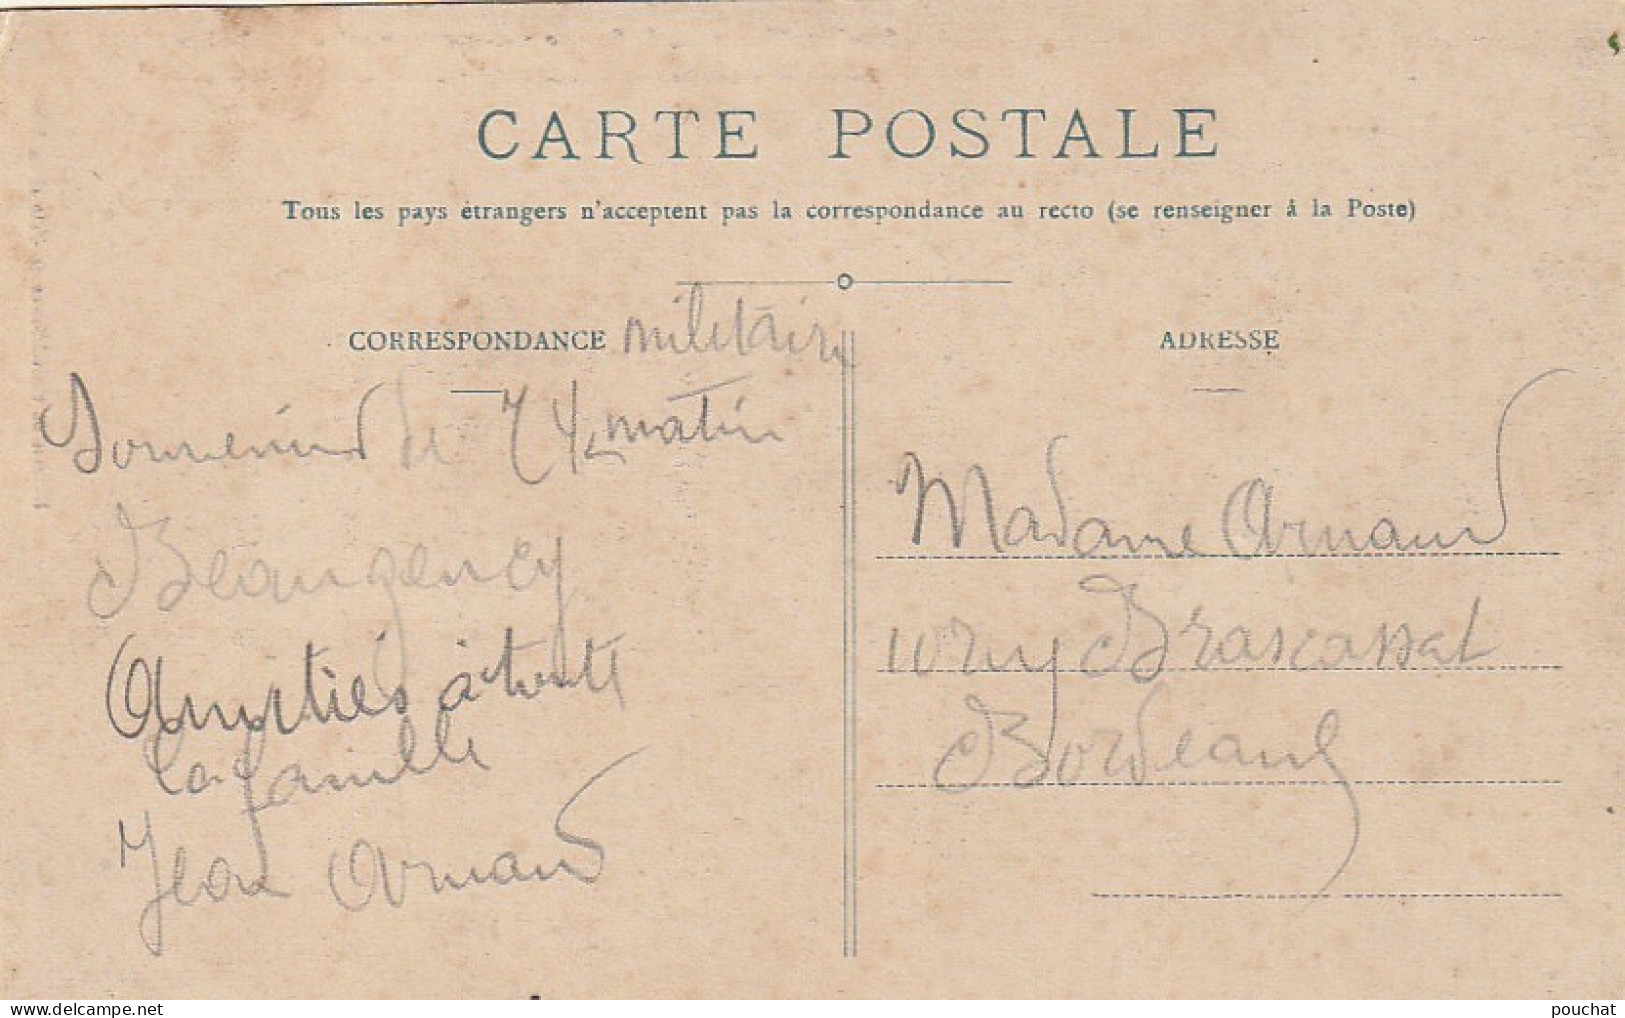 CARTE POSTALE
Tous les pays étrangers n'acceptent pas la correspondance au recto (se renseigner à la Poste)
CORRESPONDANCE militaire
Souvenir de 7 ½ matin
Beaugency
Amitiés à toute
la famille
Jean Arnaud
ADRESSE
Madame Arnaud
10 Brascassat
Bordeaux
pouchat